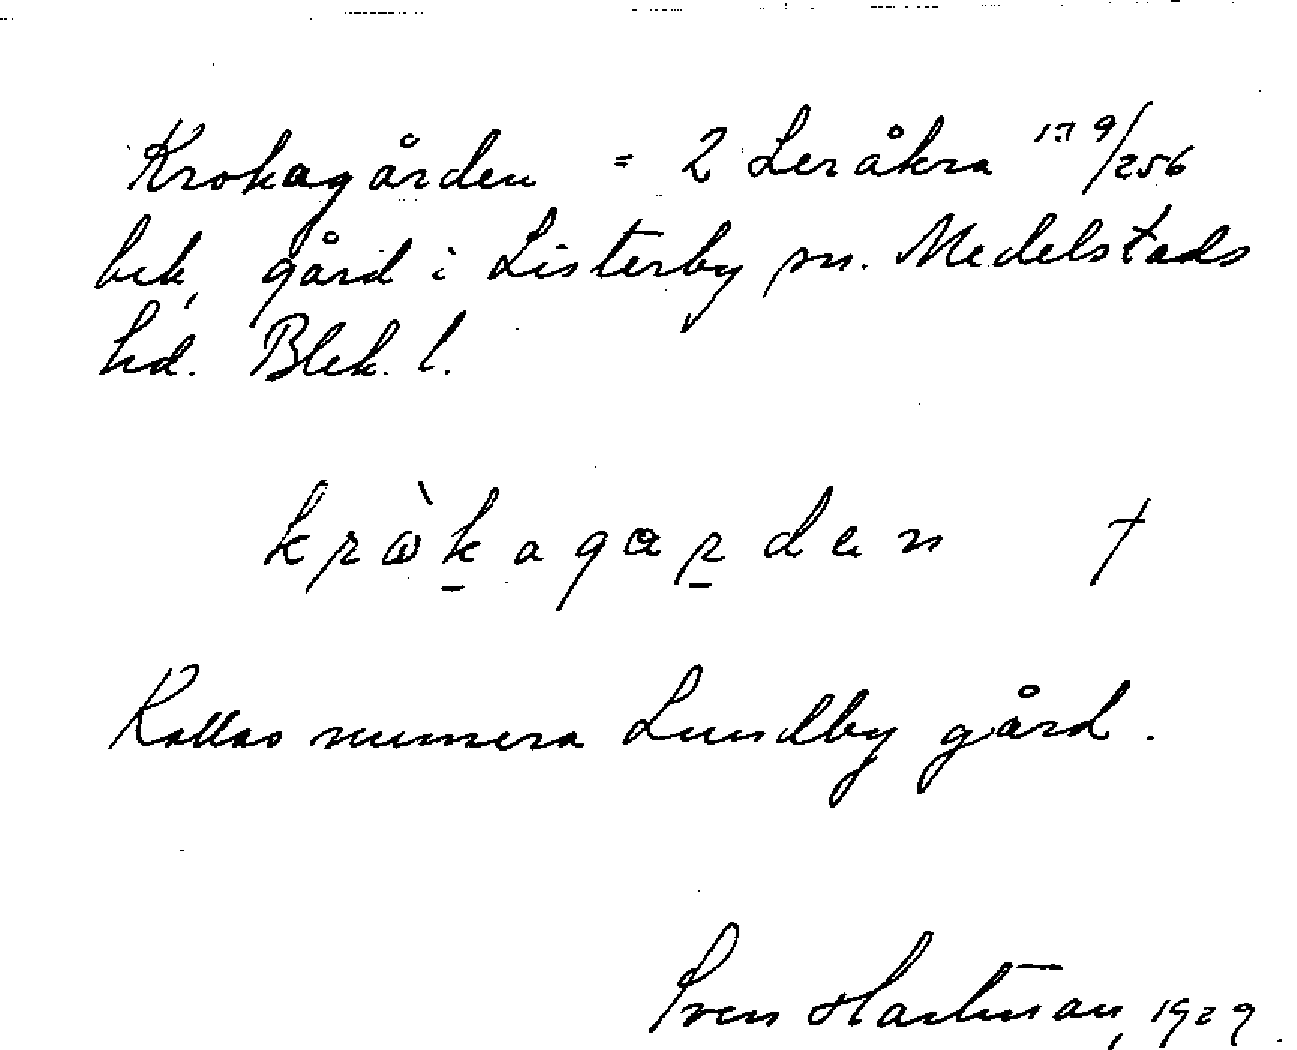 Krokagården = 2 Leråkra 179/256
bek, gård i Listerby sn. Medelstads
hd. Blek. l.
kròkagarden †
Kallas numera Lundby gård.
Sven Hartman, 1929.